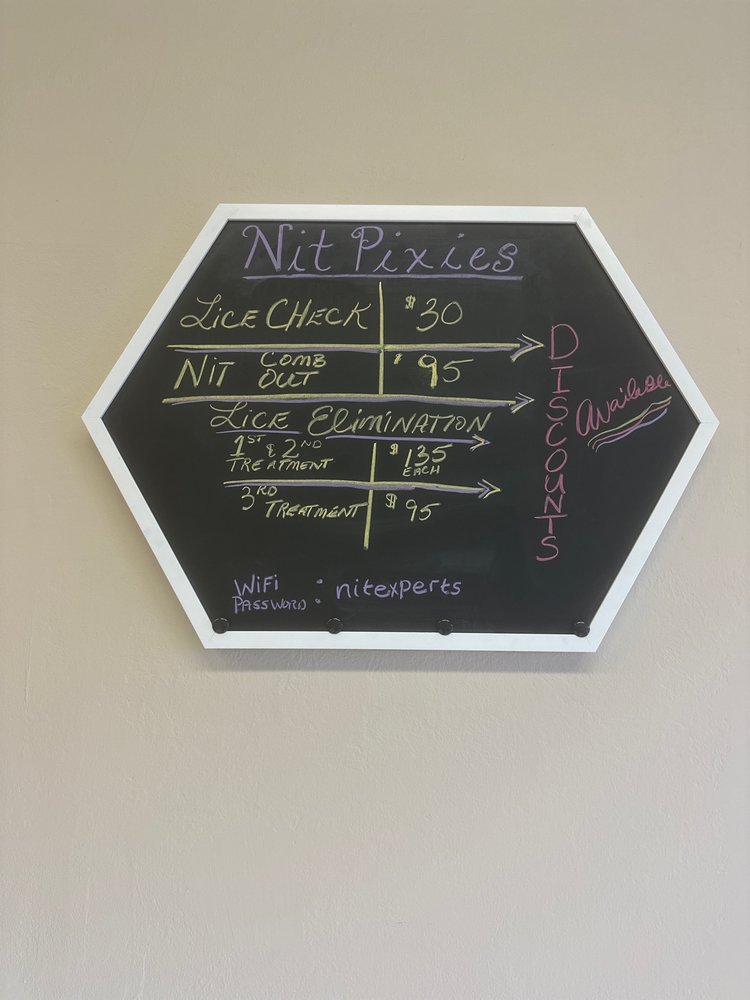 Nit Pixies
Lice Check $30
Nit Comb Out $95
Lice Elimination
1ST & 2ND Treatment $135 Each
3RD Treatment $95
DISCOUNTS
Available
WiFi Password: nitexperts